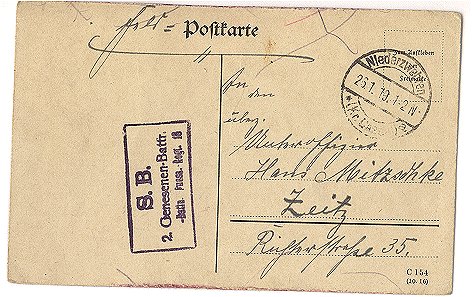 Feld= Postkarte
Zum Aufkleben
der
Freimarke
Niederzwehren
26.1.19.1-2N
*(Kr. Cassel)
An
den
Unteroffizier
Hans Mitzschke
Zeitz
Richterstraße 35.
S. B.
2. Genesenen-Battr.
Fussa.-Regt. 18
C 154
(10. 16)